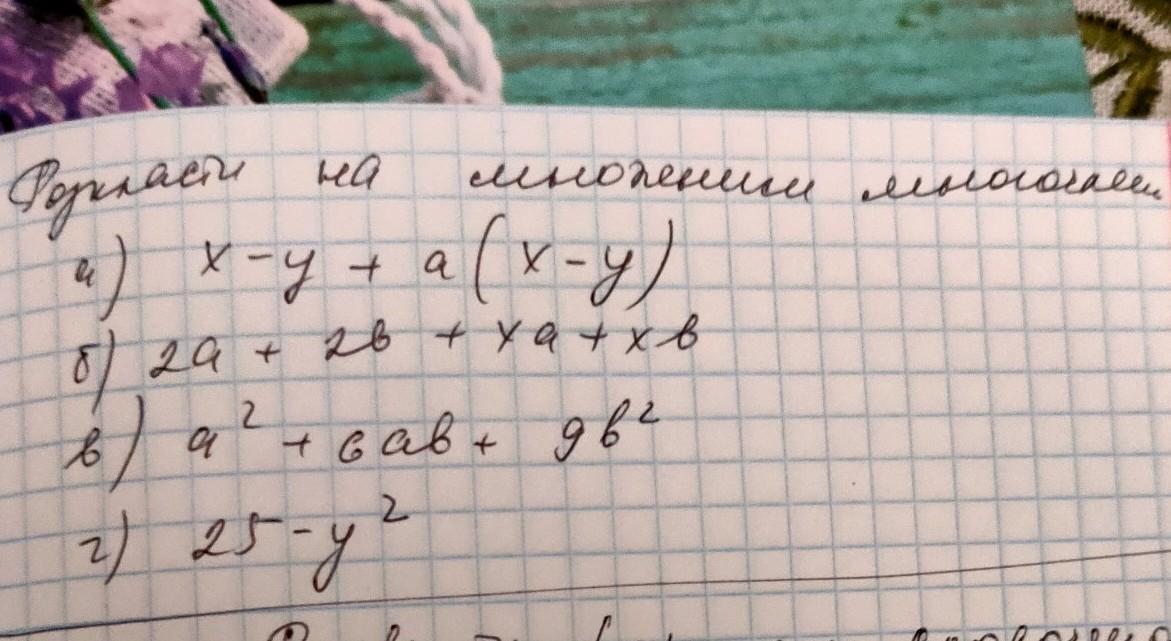 Розкласти на множники многочлен
а) x - y + a(x - y)
б) 2a + 2b + xa + xb
в) a² + 6ab + 9b²
г) 25 - y²